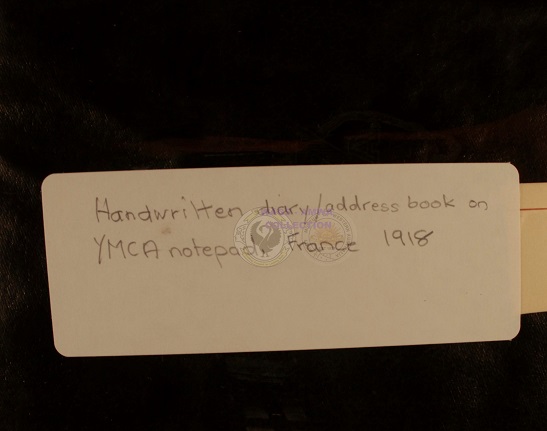 Handwritten diary/address book on
YMCA notepad, France 1918